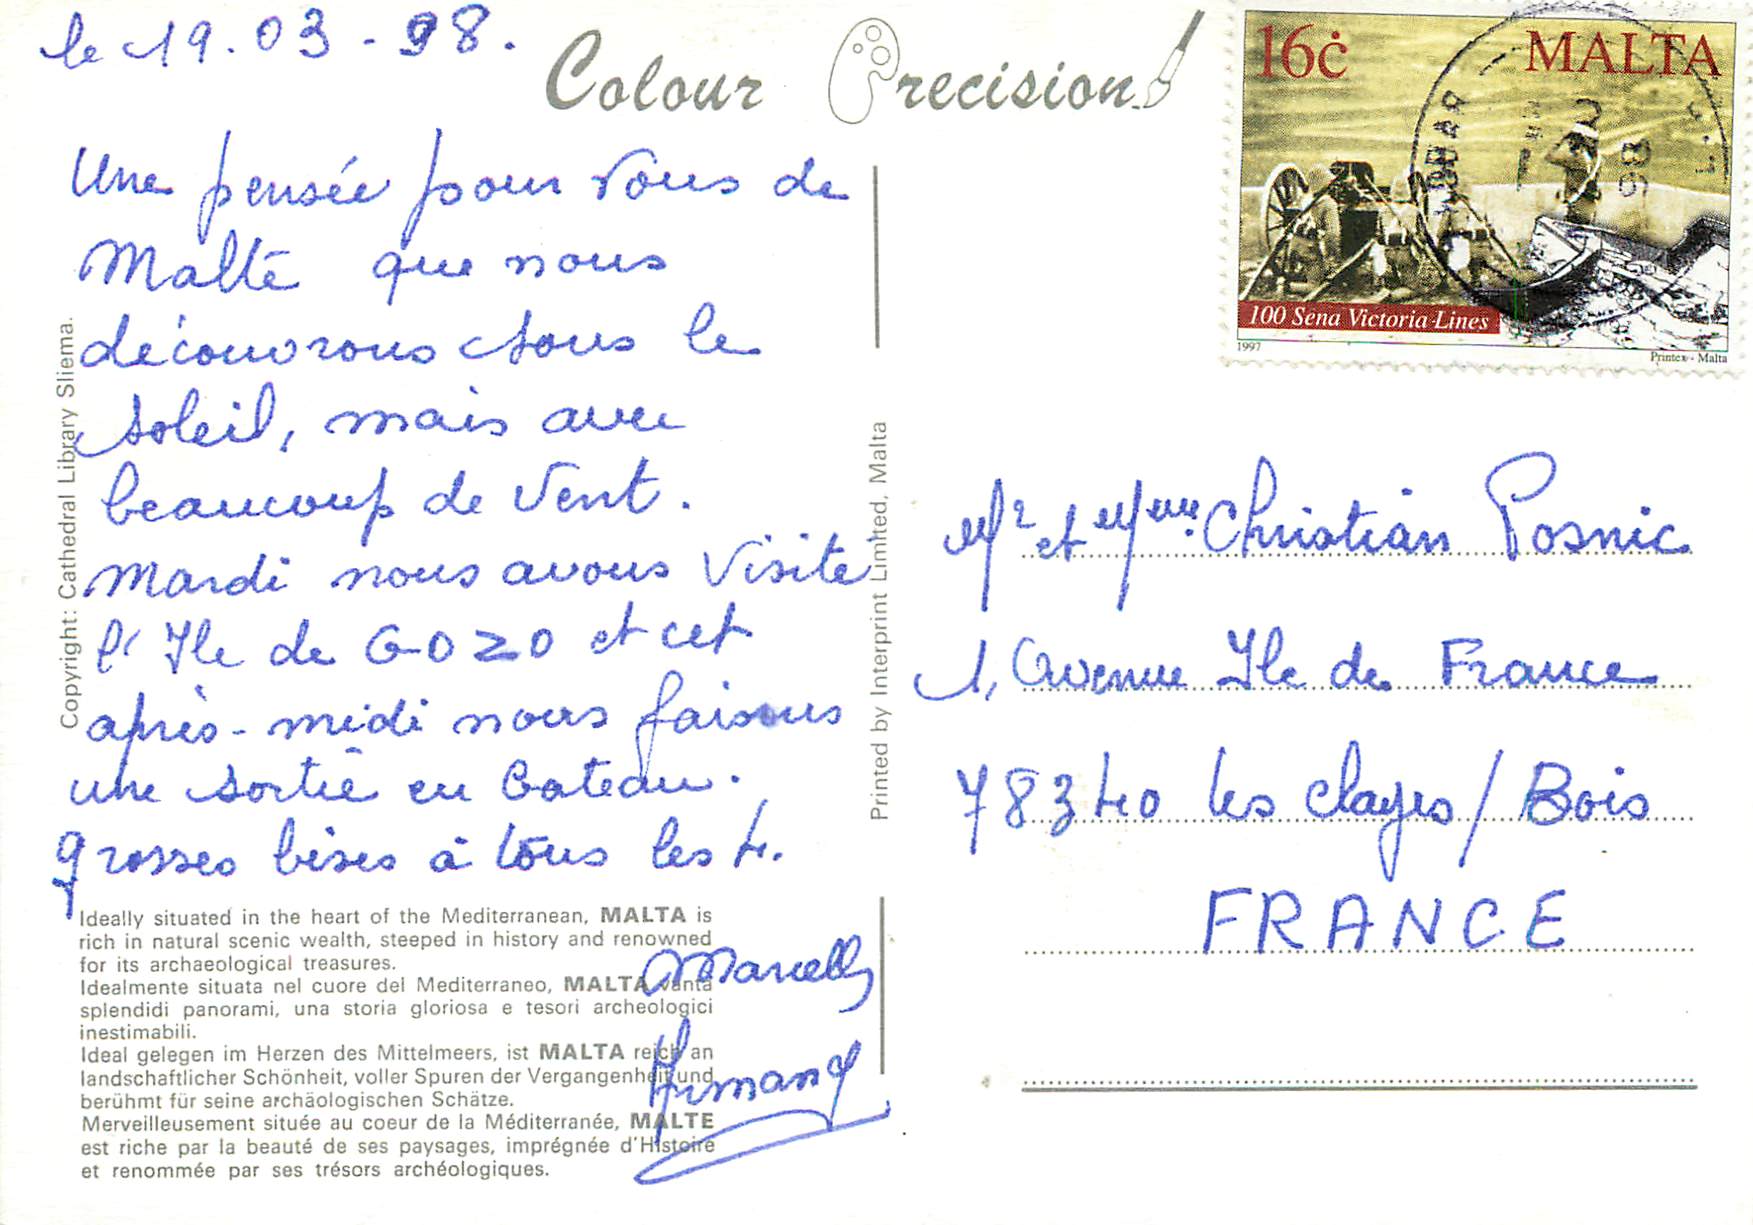 le 19.03-98.
Colour Precision
Une pensée pour vous de
Malte que nous
découvrons sous le
soleil, mais avec
beaucoup de vent.
Mardi nous avons visité
l'Ile de GOZO et cet
après-midi nous faisons
une sortie en bateau.
grosses bises à tous les 4.
Marcelle
Armand
Copyright: Cathedral Library Sliema.
Ideally situated in the heart of the Mediterranean, MALTA is
rich in natural scenic wealth, steeped in history and renowned
for its archaeological treasures.
Idealmente situata nel cuore del Mediterraneo, MALTA vanta
splendidi panorami, una storia gloriosa e tesori archeologici
inestimabili.
Ideal gelegen im Herzen des Mittelmeers, ist MALTA reich an
landschaftlicher Schönheit, voller Spuren der Vergangenheit und
berühmt für seine archäologischen Schätze.
Merveilleusement située au coeur de la Méditerranée, MALTE
est riche par la beauté de ses paysages, imprégnée d'Histoire
et renommée par ses trésors archéologiques.
Printed by Interprint Limited, Malta
16ċ MALTA
100 Sena Victoria Lines
1997 Printex - Malta
Mr et Mme. Christian Posnic
1, Avenue Ile de France
78340 les Clayes/Bois
FRANCE